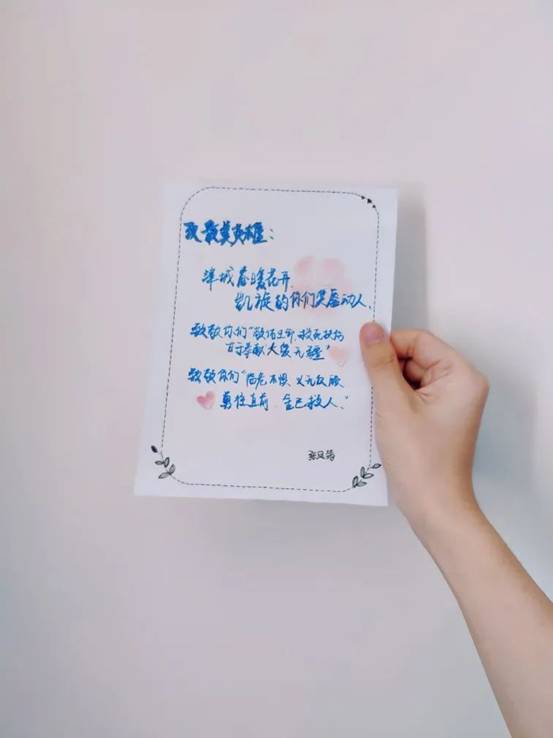 致最美英雄:
津城春暖花开,
凯旋的你们笑居动人.
致敬你们"敬佑生命,救死扶伤
甘于奉献 大爱无疆"
致敬你们"临危不惧、义无反顾
勇往直前 舍己救人."